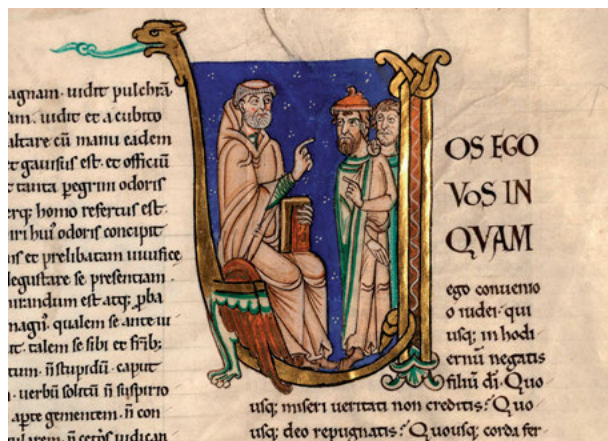 agnam. uidit pulchrā
am. uidit et a cubito
altare cū manu eadem
et gauisus est. et officiū
tanta peg̃rini odoris
erq; homo refertus est.
hui' odoris concipit
et prelibatam uiuifice
degustare se presentiam
irandum est atq; ꝑba
magn̄. qualem se ante ui
it. talem se sibi et fr̄ib;
tum. n̄ stupidū. caput
uerbū solitū n̄ suspirio
aꝑte gementem. n̄ con
n̄ iudican
VOS EGO
VOS IN
QVAM
ego conuenio
o iudei. qui
usq; in hodi
ernū negatis
filiū dī. Quo
usq; miseri ueritati non creditis? Quo
usq; deo repugnatis? Quousq; corda fer